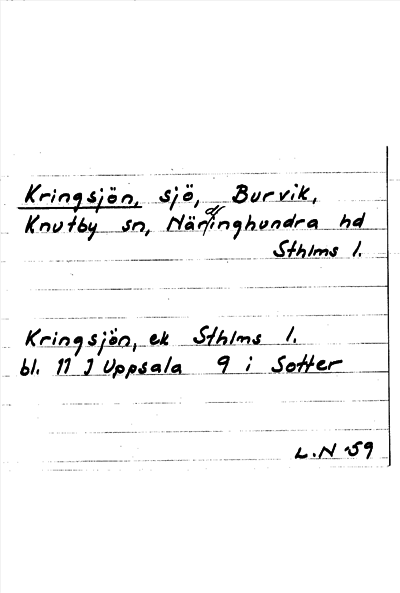 Kringsjön, sjö, Burvik,
Knutby sn, Närdinghundra hd
Sthlms l.
Kringsjön, ek Sthlms l.
bl. 11 J Uppsala 9 i Sotter
L.N -59